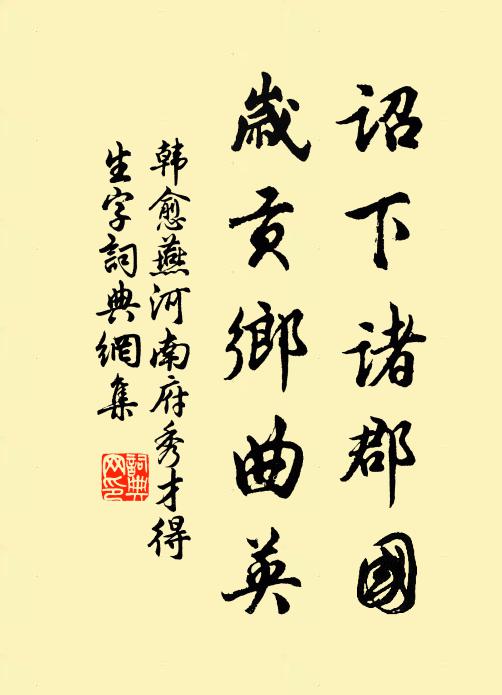 詔下諸郡國
歲貢鄉曲英
韩愈燕河南府秀才得
生字詞典網集
詞典
网印